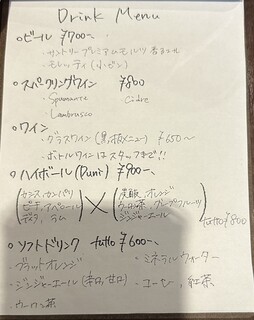 Drink Menu
○ビール ¥700〜、
・サントリープレミアムモルツ 香るエール
・モレッティ(小ビン)
○スパークリングワイン ¥800
・Spumante ・Cidre
・Lambrusco
○ワイン
・グラスワイン(黒板メニュー) ¥650〜
・ボトルワインはスタッフまで!!
○ハイボール(Duni) ¥900〜、
(カシス、カンパリ ピーチ、アペロール ディタ、ラム) × (炭酸、オレンジ ウーロン茶、グレープフルーツ ジンジャーエール) tutto ¥800
○ソフトドリンク tutto ¥600〜、
・ブラッドオレンジ ・ミネラルウォーター
・ジンジャーエール(辛口、甘口) ・コーヒー、紅茶
・ウーロン茶